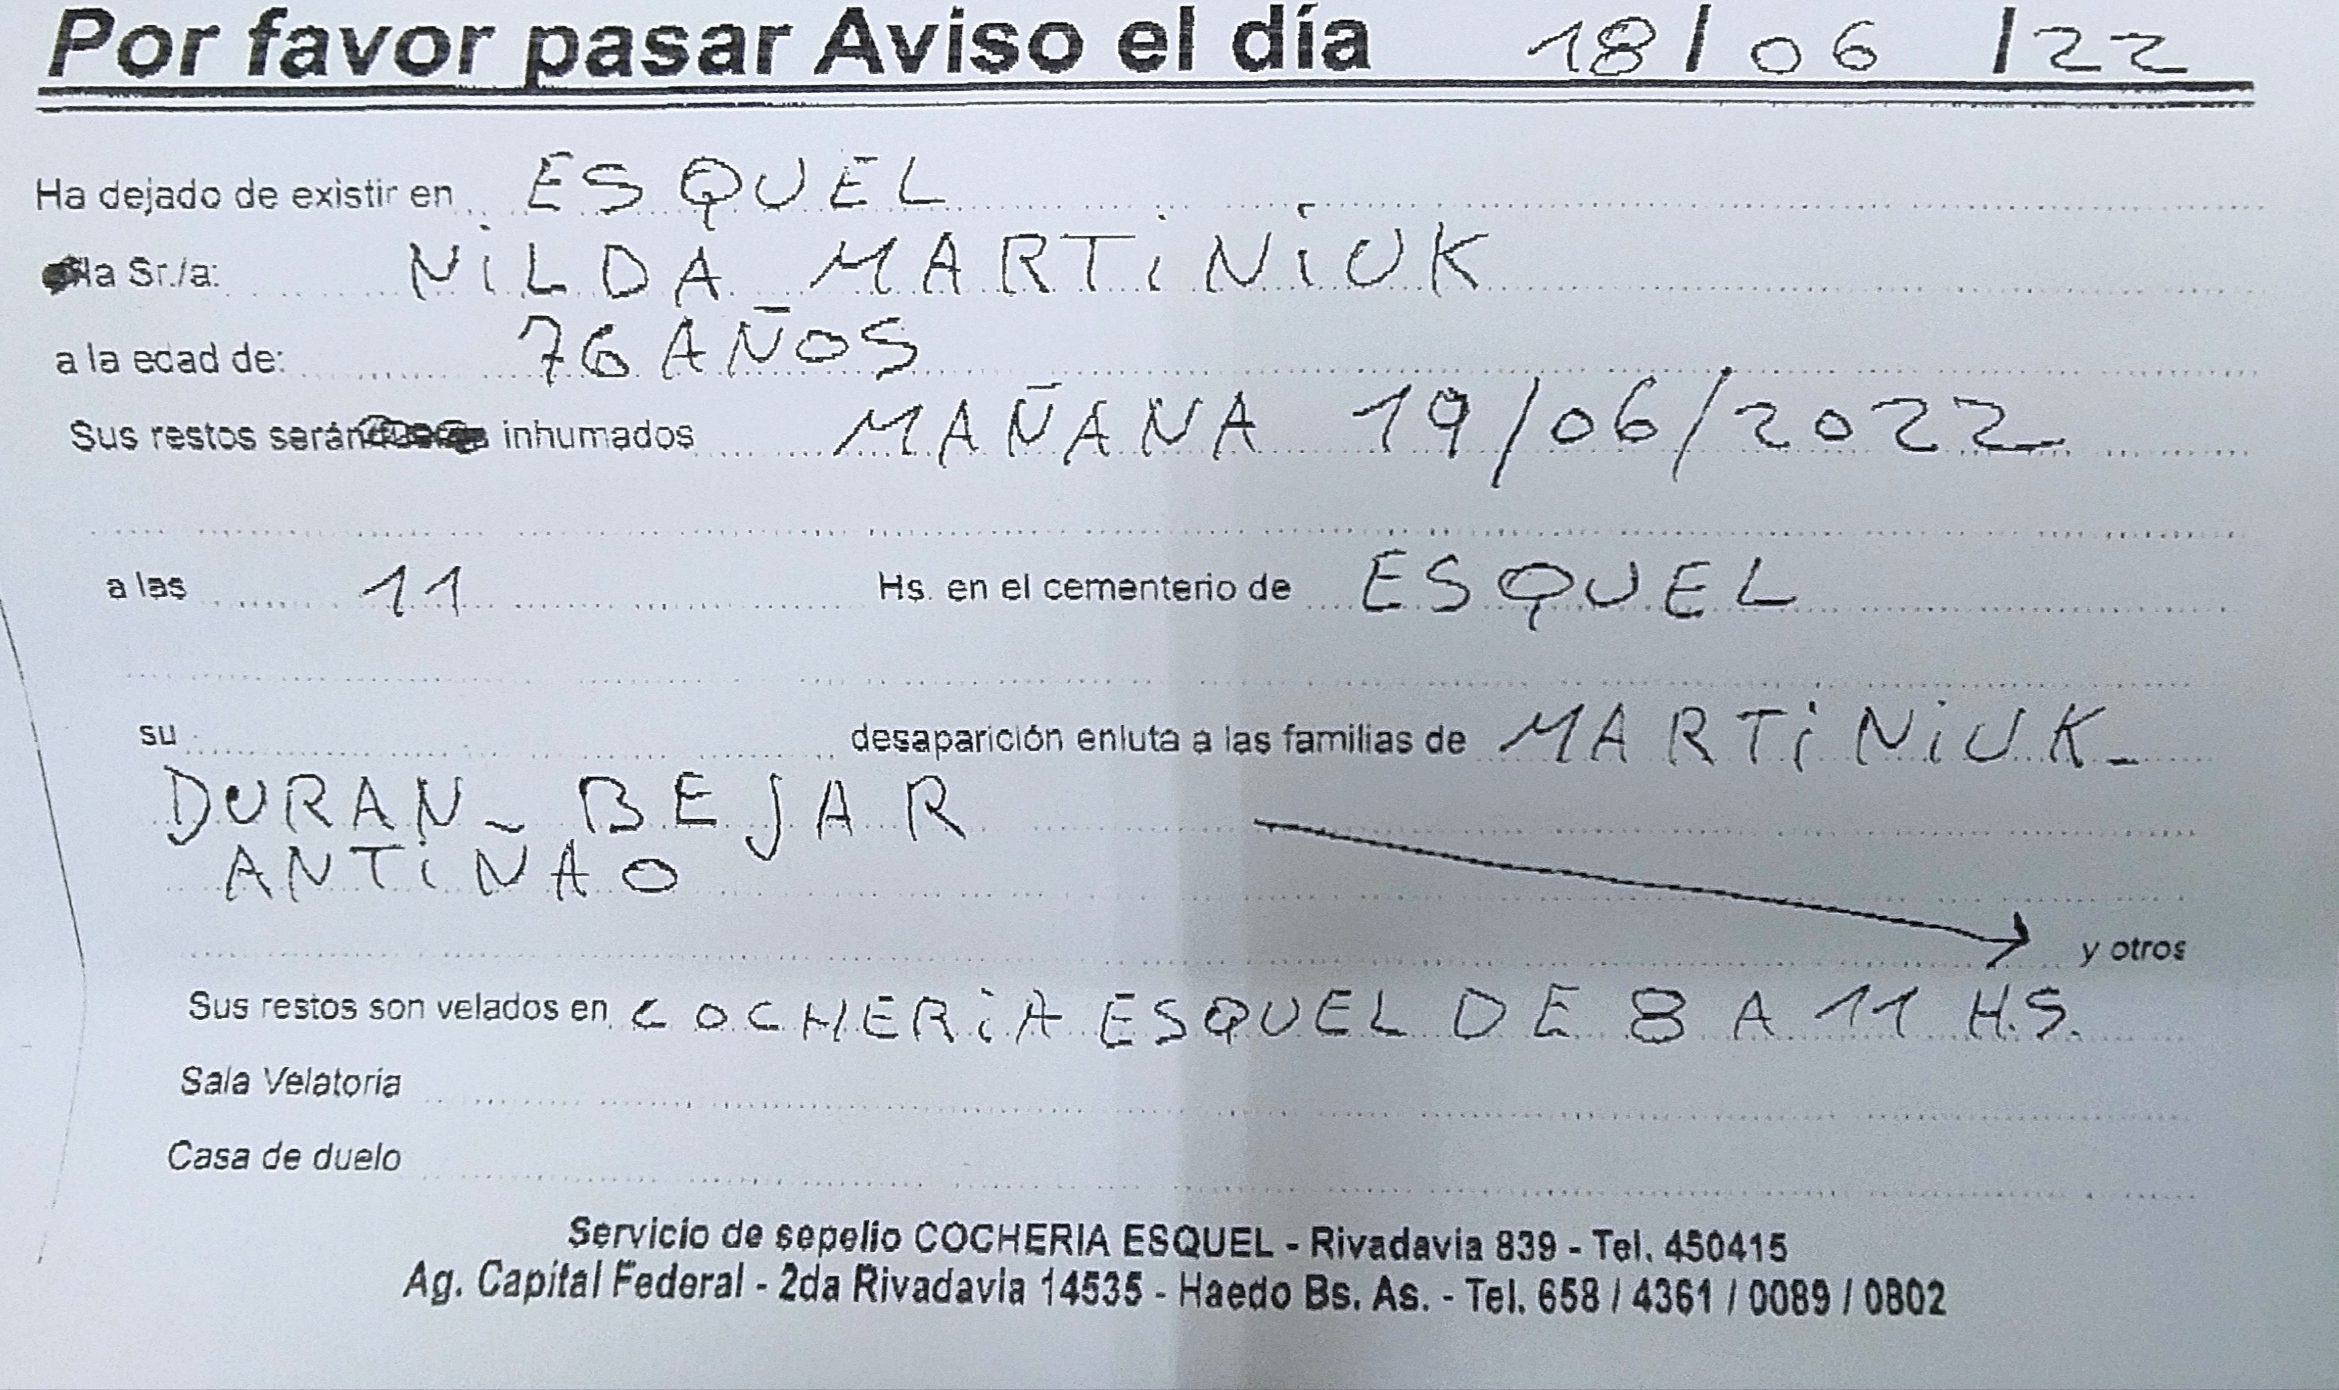 Por favor pasar Aviso el día 18/06/22
Ha dejado de existir en ESQUEL
la Sr./a: NiLDA MARTiNiUK
a la edad de: 76 AÑOS
Sus restos serán inhumados MAÑANA 19/06/2022
a las 11 Hs. en el cementerio de ESQUEL
su desaparición enluta a las familias de MARTiNiUK-
DURAN- BEJAR
ANTiNAO
y otros
Sus restos son velados en COCHERiA ESQUEL DE 8 A 11 H.S.
Sala Velatoria
Casa de duelo
Servicio de sepelio COCHERIA ESQUEL - Rivadavia 839 - Tel. 450415
Ag. Capital Federal - 2da Rivadavia 14535 - Haedo Bs. As. - Tel. 658 / 4361 / 0089 / 0802